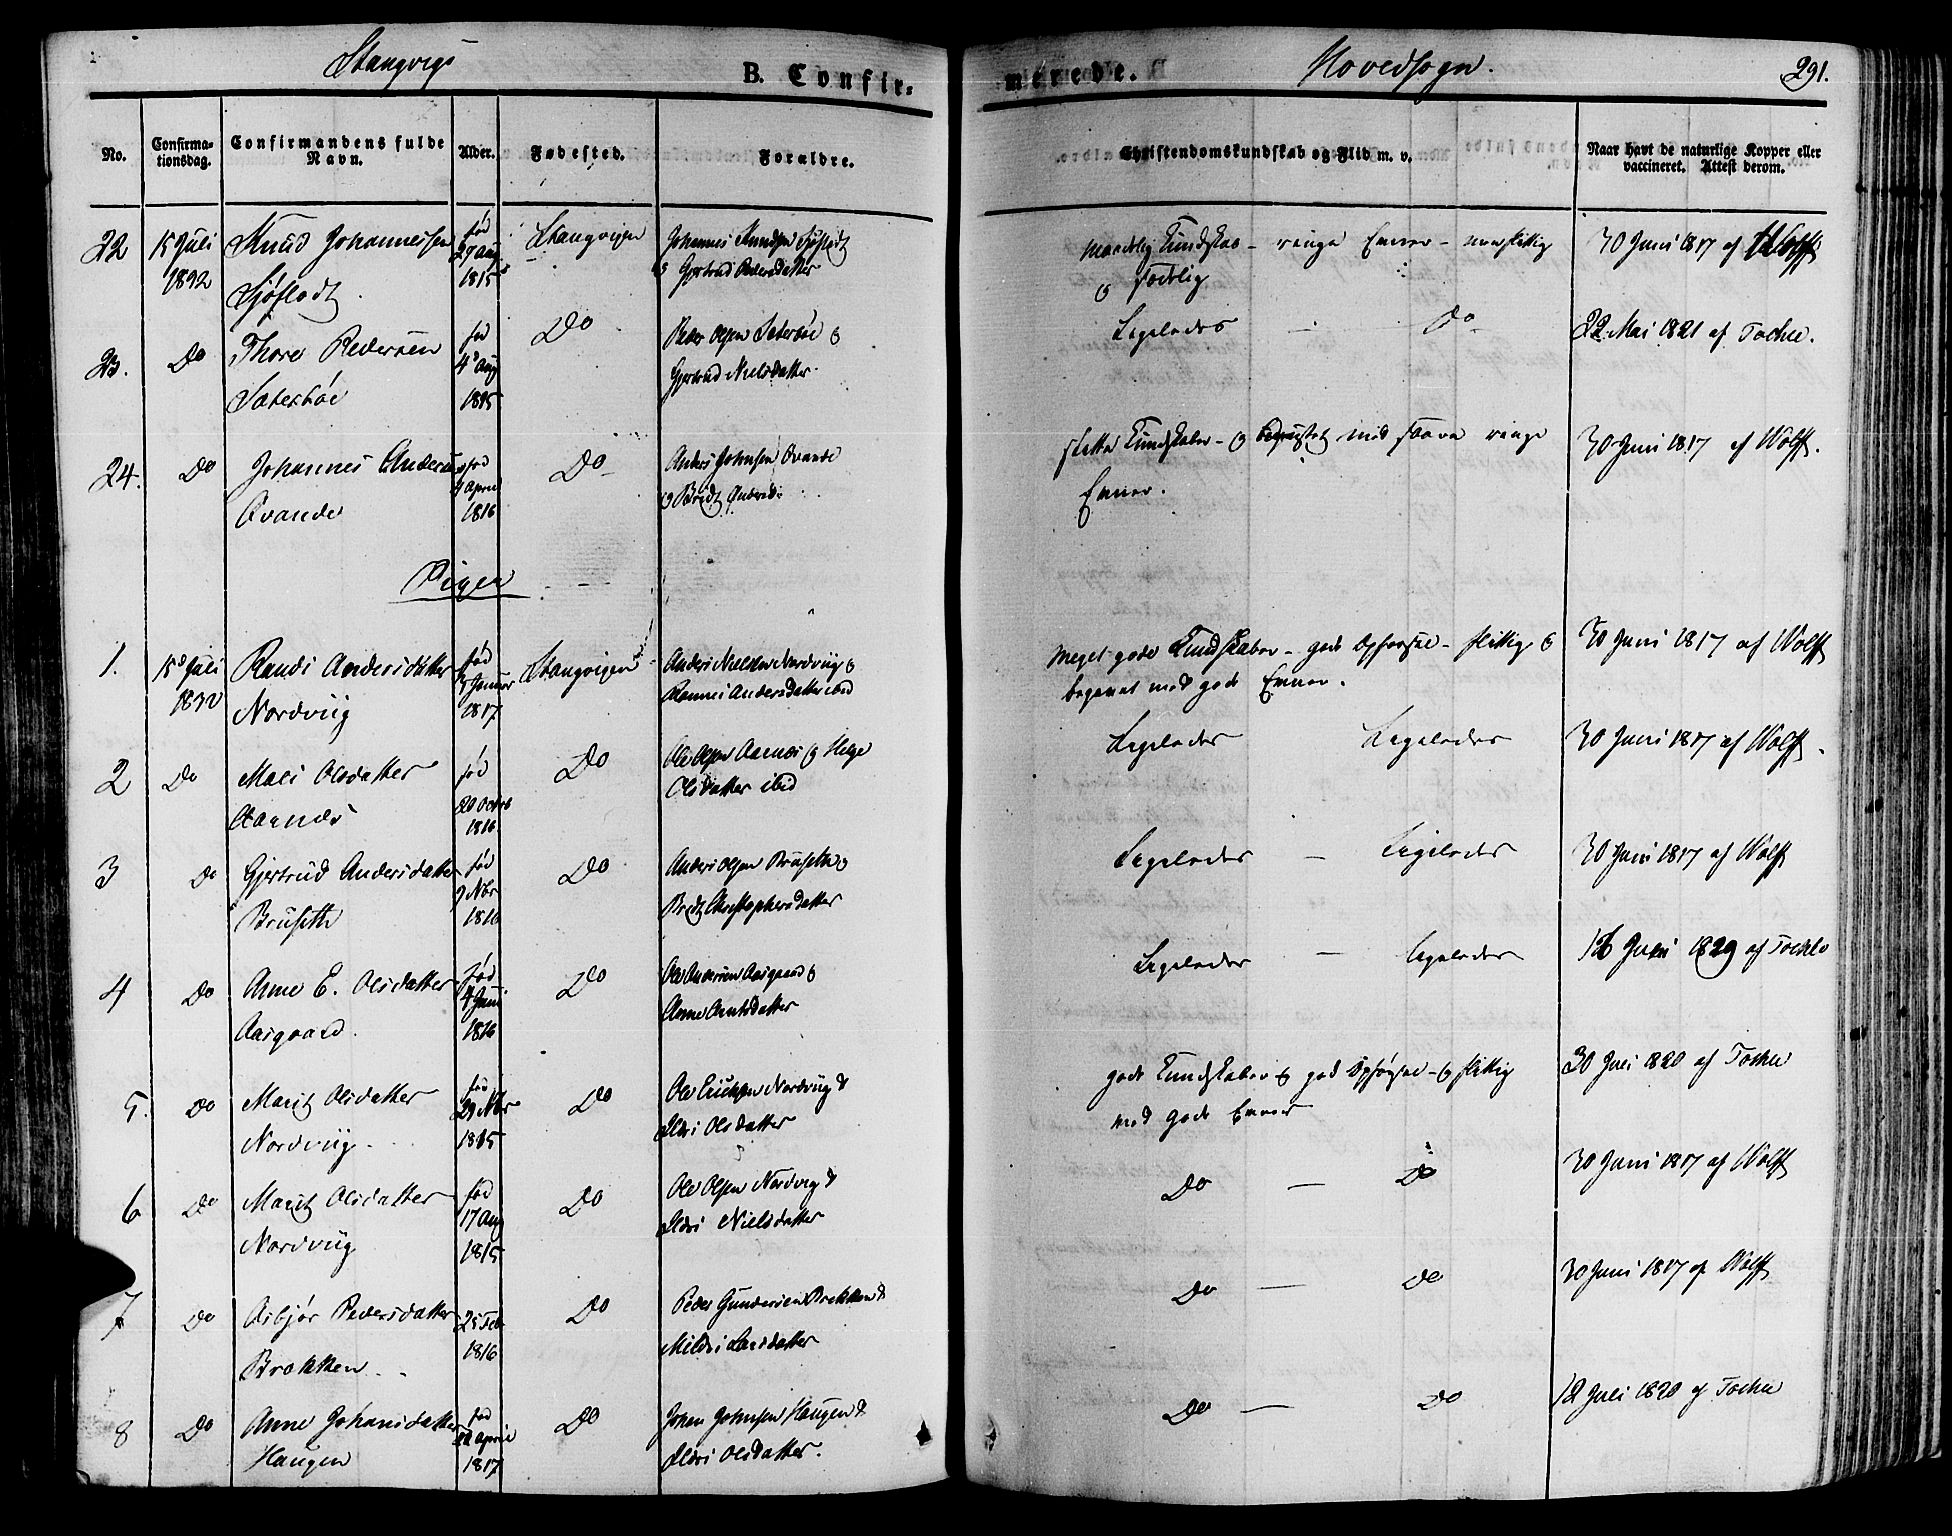 Stangvigs
B. Confir-
merede.
Hovedsogn.
291.
No.
Confirma-
tionsdag.
Confirmandens fulde
Navn.
Alder.
Fødested.
Forældre.
Christendomskundskab og Flid m. v.
Naar havt de naturlige Kopper eller
vaccineret. Attest derom.
22
15 Juli
1832
Knud Johannessen
Sjøflodt.
fød
29 Aug
1815
Stangvigen
Johannes Knudsen Sjøflodt
og Gjertrud Pedersdatter
Maadelig Kundskab - ringe Evner -
30 Juni 1817 af Wolff
23.
Do
Thore Pedersen
Sæterbøe
fød
4 Aug
1815
Do
Peder Olsen Sæterbøe og
Gjertrud Nielsdatter
Ligeledes - Do
22 Mai 1821 af Tochle.
24.
Do
Johannes Andersen
Qvande
fød
4 April
1816
Do
Anders Johnsen Qvande
og Bredt
slette Kundskaber - og med ringe
Evner.
30 Juni 1817 af Wolff.
Piger
1.
15 Juli
1832
Randi Andersdatter
Nordviig
fød
Januar
1817
Stangvigen
Anders Nielsen Nordviig og
Andersdatter ibid
Meget gode Kundskaber - god Opførsel - flittig og
begavet med gode Evner.
30 Juni 1817 af Wolff
2
Do
Mari Olsdatter
Aarnæs
fød
20 Octbr
1816
Do
Ole Olsen Aarnæs og Helge
Olsdatter ibid
Ligeledes Ligeledes
30 Juni 1817 af Wolff.
3
Do
Gjertrud Andersdatter
Bruseth
fød
9 Nbr
1816
Do
Anders Olsen Bruseth og
Bredt Christophersdatter
Ligeledes - Ligeledes
30 Juni 1817 af Wolff
4
Do
Anne E. Olsdatter
Aasgaard.
Fød
4 Juni
1816
Do
Ole Andersen Aasgaard og
Anne Arntsdatter
Ligeledes - Ligeledes
1829 af Tochle
5.
Do
Marit Olsdatter
Nordviig
fød
29 Nbr
1815
Do
Ole Erichsen Nordviig &
Ildri Olsdatter
gode Kundskaber og god Opførsel - og flittig
med gode Evner
30 Juli 1820 af Tochle
6
Do
Marit Olsdatter
Nordviig
fød
17 Aug
1815
Do
Ole Olsen Nordvig &
Ildri Nielsdatter
Do - Do
30 Juni 1817 af Wolff
7
Do
Asbjør Pedersdatter
Brækken
25 Feb
1816
Do
Peder Gundersen Brækken &
Mildri Larsdatter
Do - Do
30 Juni 1817 af Wolff
8
Do
Anne Johansdatter
Haugen
fød
April
1817
Do
Johan Johnsen Haugen &
Ildri Olsdatter.
Do - Do
12 Juli 1820 af Tochle